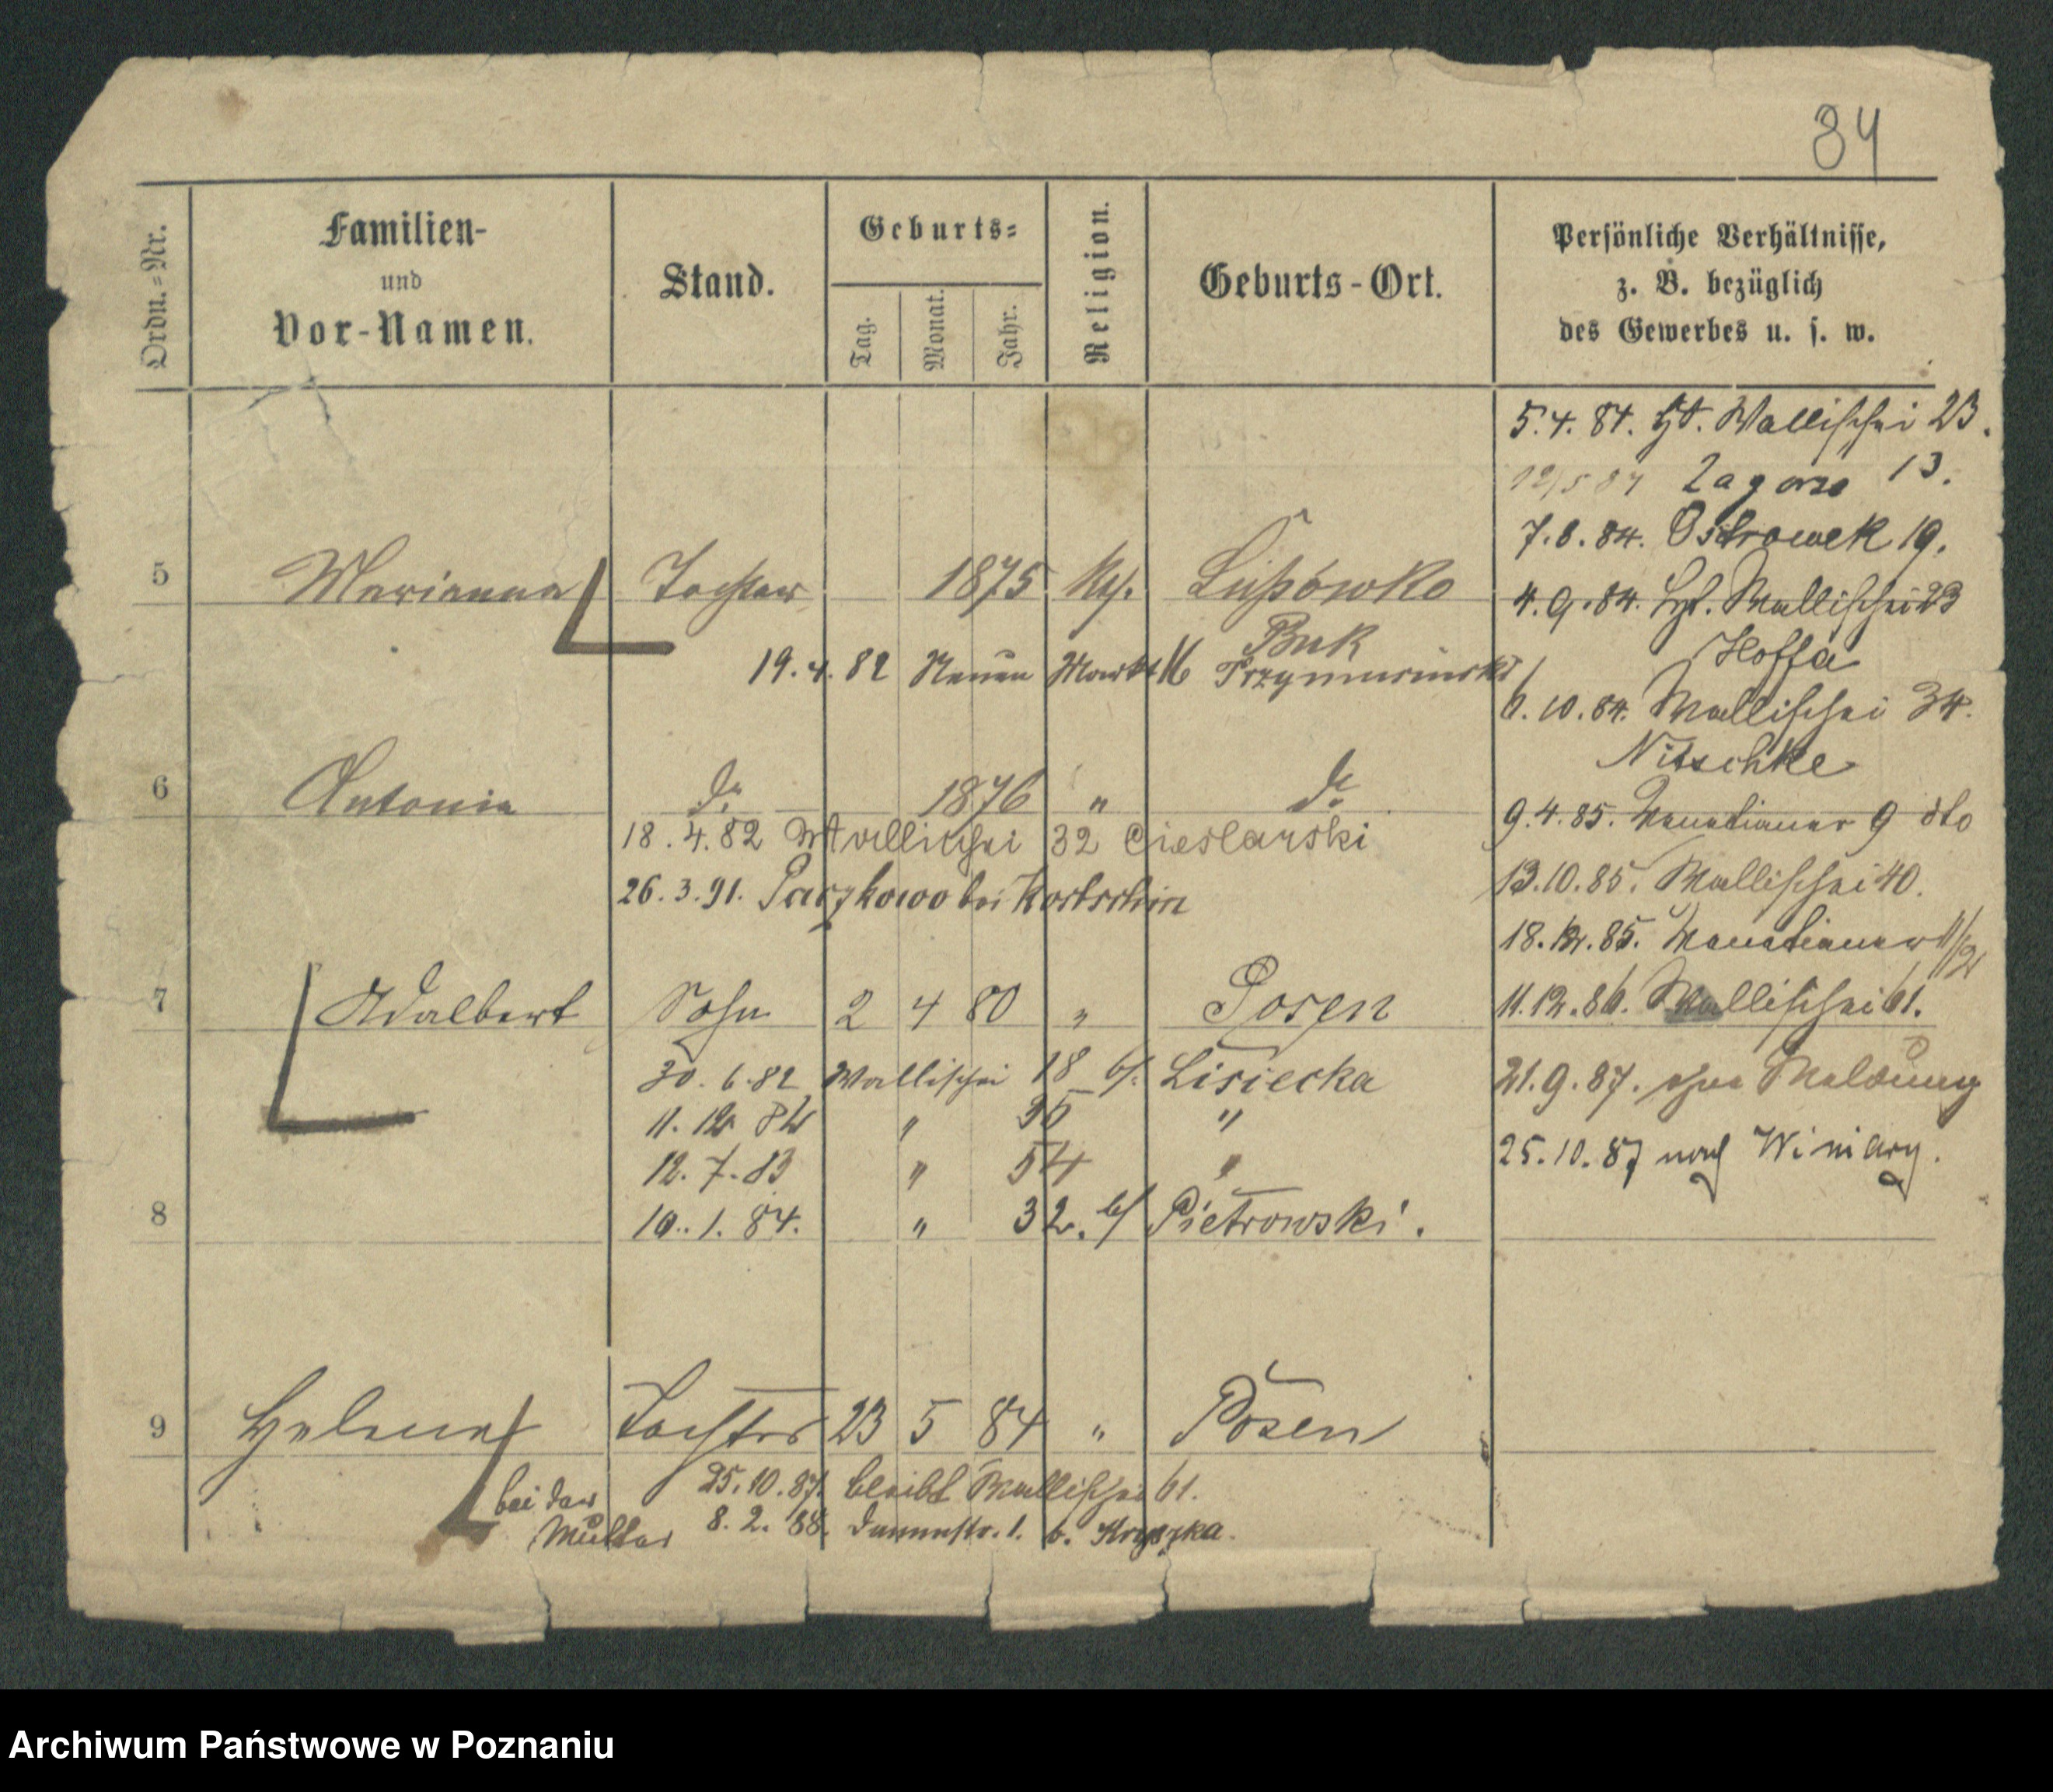 84
Ordn.-Nr.
Familien-
und
Vor-Namen.
Stand.
Geburts-
Tag.
Monat.
Jahr.
Religion.
Geburts-Ort.
Persönliche Verhältnisse,
z. B. bezüglich
des Gewerbes u. s. w.
5.4.84. Wallischei 23.
12/5 84 Zagorze 13.
7.8.84. Ostrowek 19.
5 Marianna Tochter 1875 kth. Lussowko
4.9.84. Wallischei 23
Buk
Hoffa
19.4.82 Neuen Markt 16 Przymusinski
6.10.84. Wallischei 34.
Nitschke
6 Antonie do 1876 " do
9.4.85. Venetianer 9 dto
18.4.82 Wallischei 32 Cieslarski
13.10.85. Wallischei 40.
26.3.91. Paczkowo bei Kostschin
18.12.85. Venetianer 11/12
7 Adalbert Sohn 2 4 80 " Posen
11.12.86. Wallischei 61.
30.6.82 Wallischei 18 b/. Lisiecka
21.9.87. ohne Meldung
11.12 82 " 36 "
12.7.83 " 54 "
25.10.87 nach Winiary.
8 10.1.84. " 32. b/ Pietrowski.
9 Helena Tochter 23 5 84 " Posen
25.10.87. bleibt Wallischei 61.
bei der
Mutter
8.2.88. Dammstr. 1. b.
Archiwum Państwowe w Poznaniu